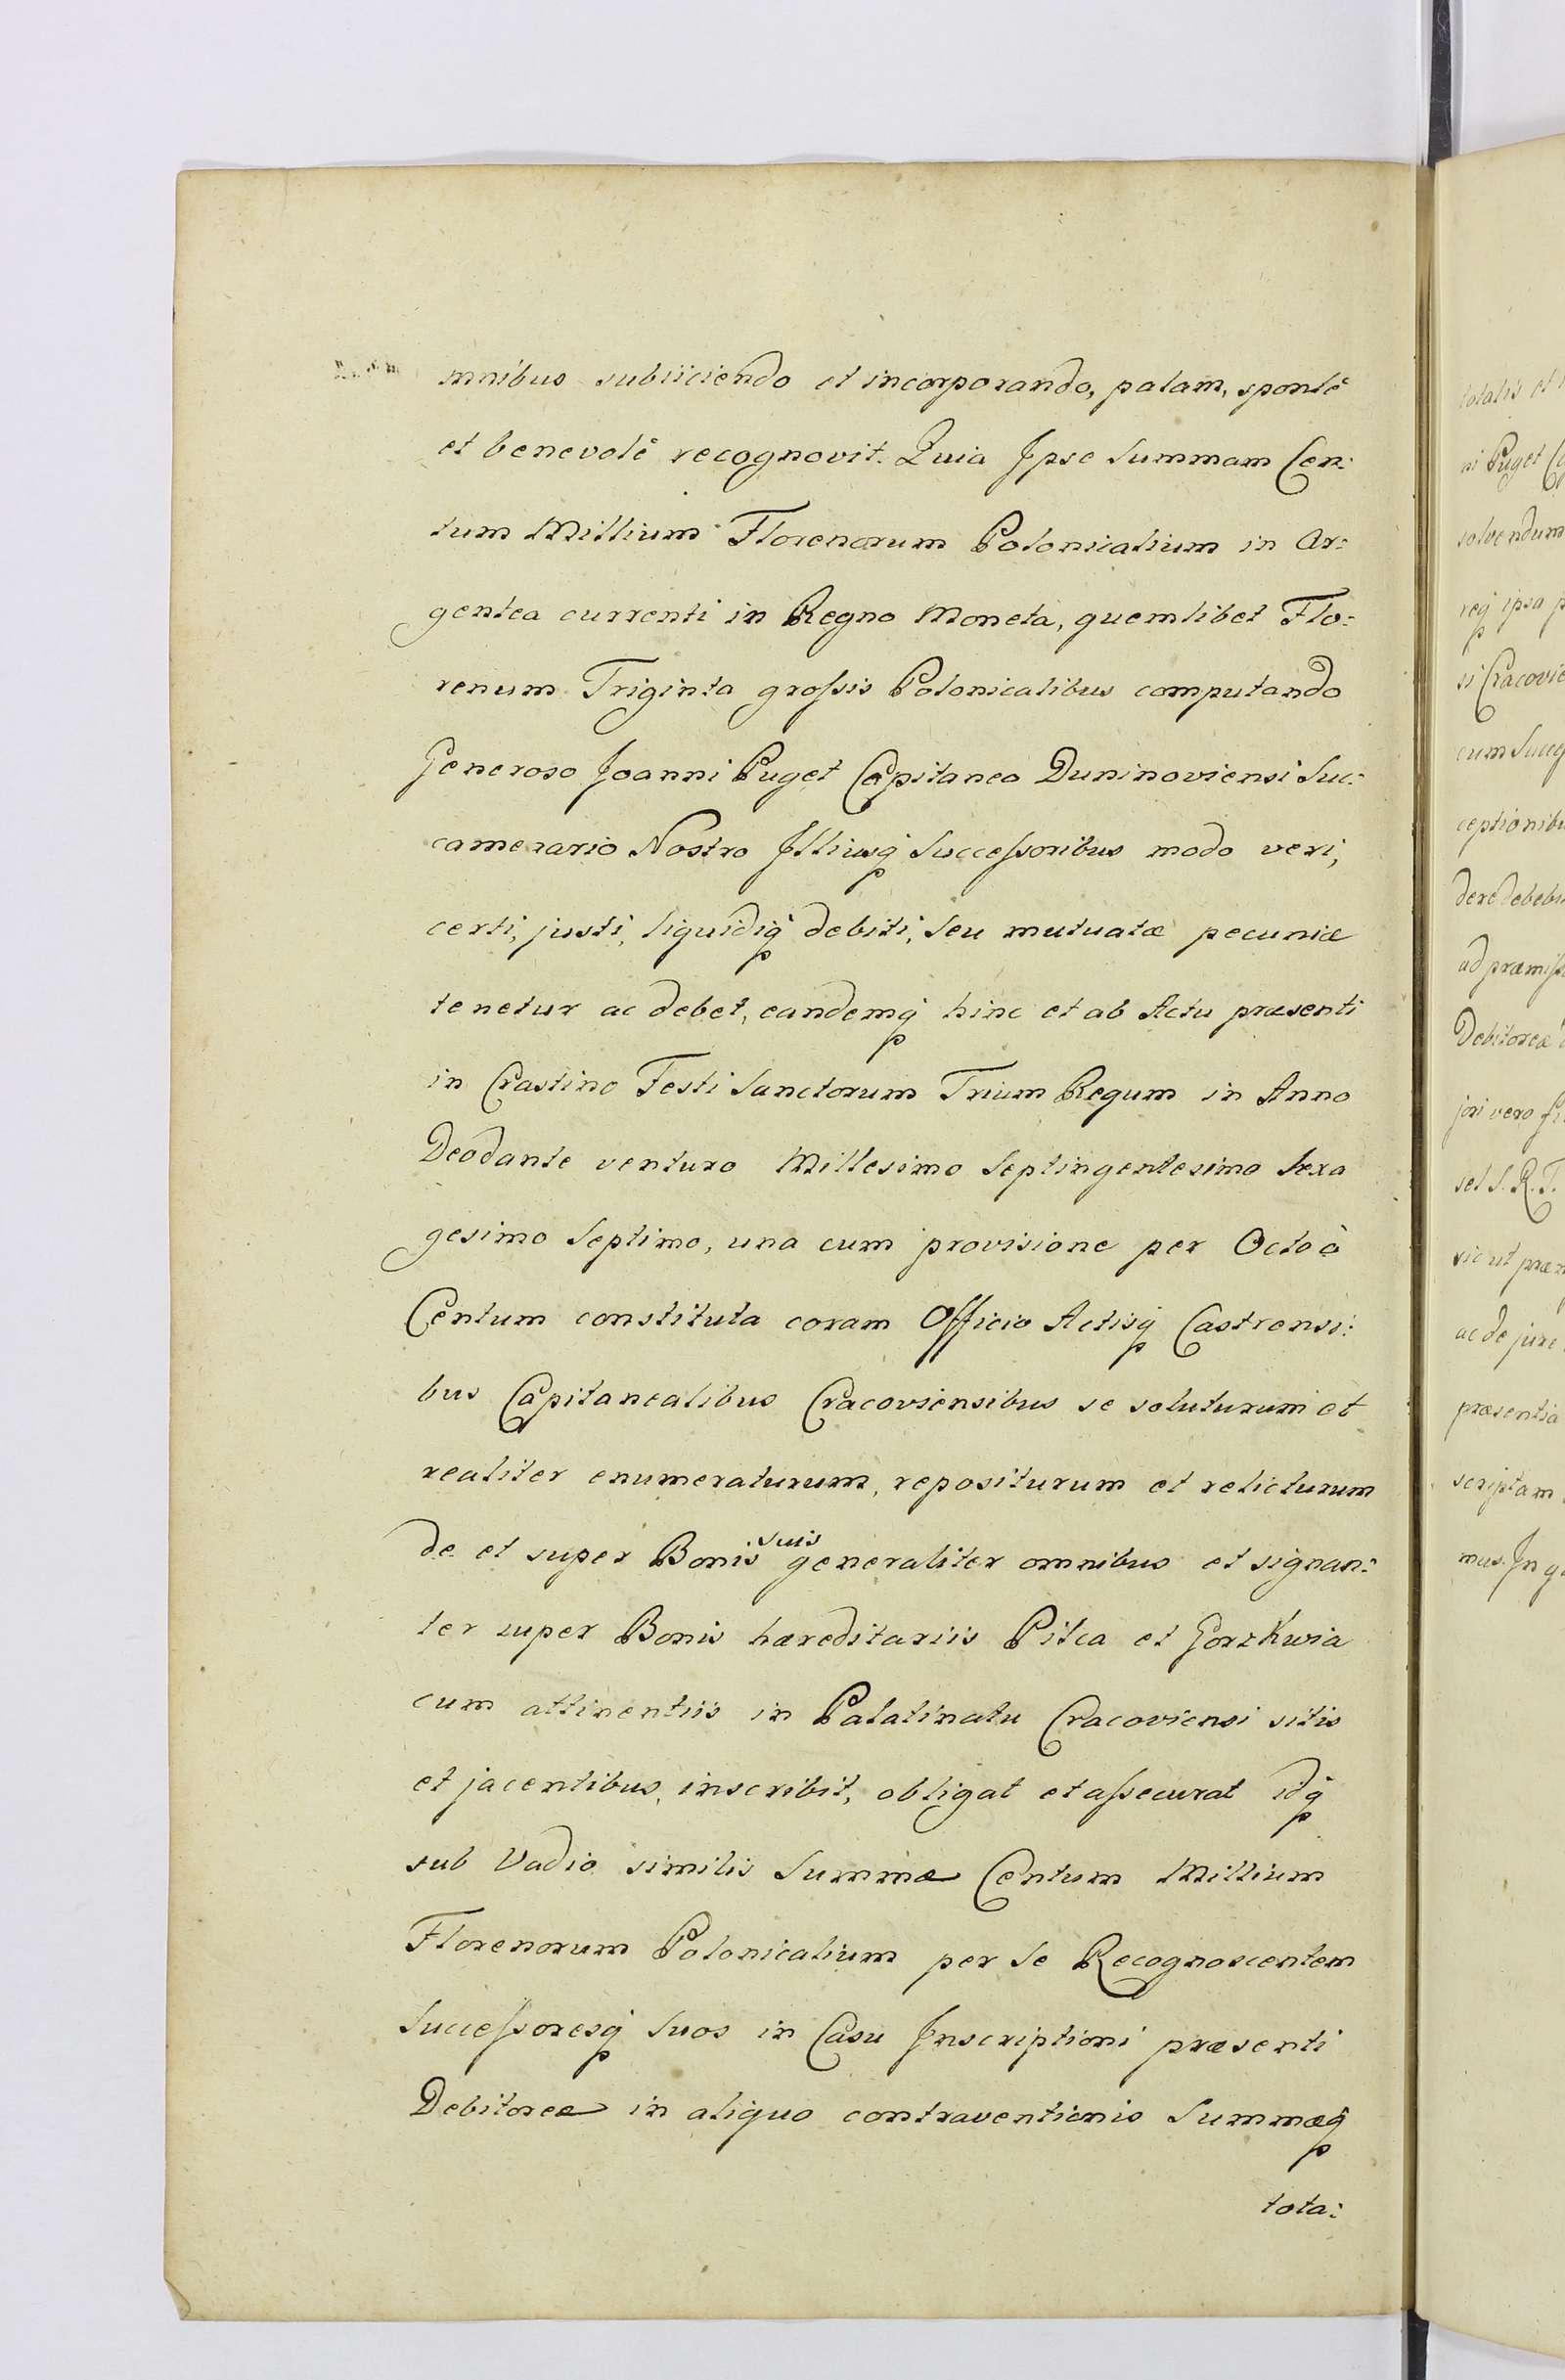 mnibus subiiciendo et incorporando, palam, spontè
et benevolè recognovit. Quia Jpse Summam Cen:
tum Millium Florenorum Polonicalium in Ar:
gentea currenti in Regno Moneta, quemlibet Flo:
renum Triginta grossis Polonicalibus computando
Generoso Joanni Puget Capitaneo Duninoviensi Suc:
camerario Nostro Jlliusq Successoribus modo veri,
certi, justi, liquidiq debiti, seu mutuatæ pecuniæ
tenetur ac debet, eandemq hinc et ab Actu præsenti
in Crastino Festi Sanctorum Trium Regum in Anno
Deodante venturo Millesimo Septingentesimo Sexa
gesimo Septimo, una cum provisione per Octo à
Centum constituta coram Officio Actisq Castrensi:
bus Capitanealibus Cracoviensibus se soluturum et
realiter enumeraturum, repositurum et relicturum
de et super Bonis suis generaliter omnibus et signan:
ter super Bonis hæreditariis Pilca et Gorzkwia
cum attinentiis in Palatinatu Cracoviensi sitis
et jacentibus, inscribit, obligat et assecurat idq
sub Vadio similis Summæ Centum Millium
Florenorum Polonicalium per se Recognoscentem
Successoresq Suos in Casu Jnscriptioni præsenti
Debitoreæ in aliquo contraventionis Summæq
tota:
totalis et
ni Puget
solvendum
req ipsa
si Cracovie
cum Succ
ceptionib
dere debebi
ad præmiss
Debitoreæ
jori vero
set S. R. T.
sic ut præ
ac de jure
præsentia
scriptam
mus. Jn